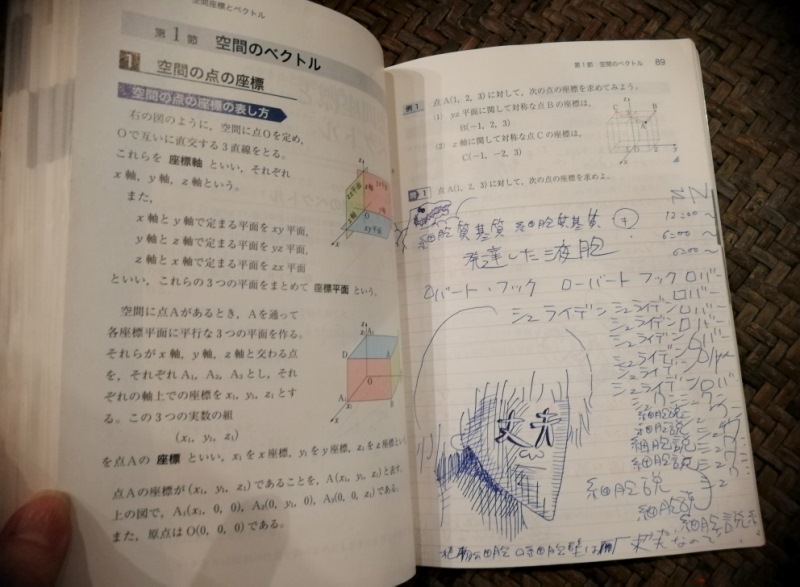 空間座標とベクトル
第1節 空間のベクトル
1 空間の点の座標
空間の点の座標の表し方
右の図のように，空間に点Oを定め，
Oで互いに直交する3直線をとる。
これらを 座標軸 といい，それぞれ
x軸，y軸，z軸という。
また，
x軸とy軸で定まる平面をxy平面，
y軸とz軸で定まる平面をyz平面，
z軸とx軸で定まる平面をzx平面
といい，これらの3つの平面をまとめて 座標平面 という。
空間に点Aがあるとき，Aを通って
各座標平面に平行な3つの平面を作る。
それらがx軸，y軸，z軸と交わる点
を，それぞれ A₁，A₂，A₃とし，それ
ぞれの軸上での座標を x₁，y₁，z₁とす
る。この3つの実数の組
(x₁, y₁, z₁)
を点Aの 座標 といい，x₁をx座標，y₁をy座標，z₁をz座標という
点Aの座標が(x₁, y₁, z₁)であることを，A(x₁, y₁, z₁)と表す。
上の図で，A₁(x₁, 0, 0)，A₂(0, y₁, 0)，A₃(0, 0, z₁)である。
また，原点はO(0, 0, 0)である。
zx平面
xy平面
第1節 空間のベクトル 89
例1 点A(1, 2, 3)に対して，次の点の座標を求めてみよう。
(1) yz平面に関して対称な点Bの座標は，
B(−1, 2, 3)
(2) z軸に関して対称な点Cの座標は，
C(−1, −2, 3)
1 点A(1, 2, 3)に対して，次の点の座標を求めよ。
細胞質基質 細胞質基質 +
12:00～
6:00～
6:00～
発達した液胞
ロバート・フック ローバート フック ロバー
シュライデン シュライデン ロバー
シュライデン ロバー
シュライデン ロバー
シュライデン
シュライデン
シュライデン ロバー
丈夫
細胞説
細胞説
細胞説
細胞説
細胞説
細胞説
細胞説
植物細胞の細胞壁は 丈夫なので